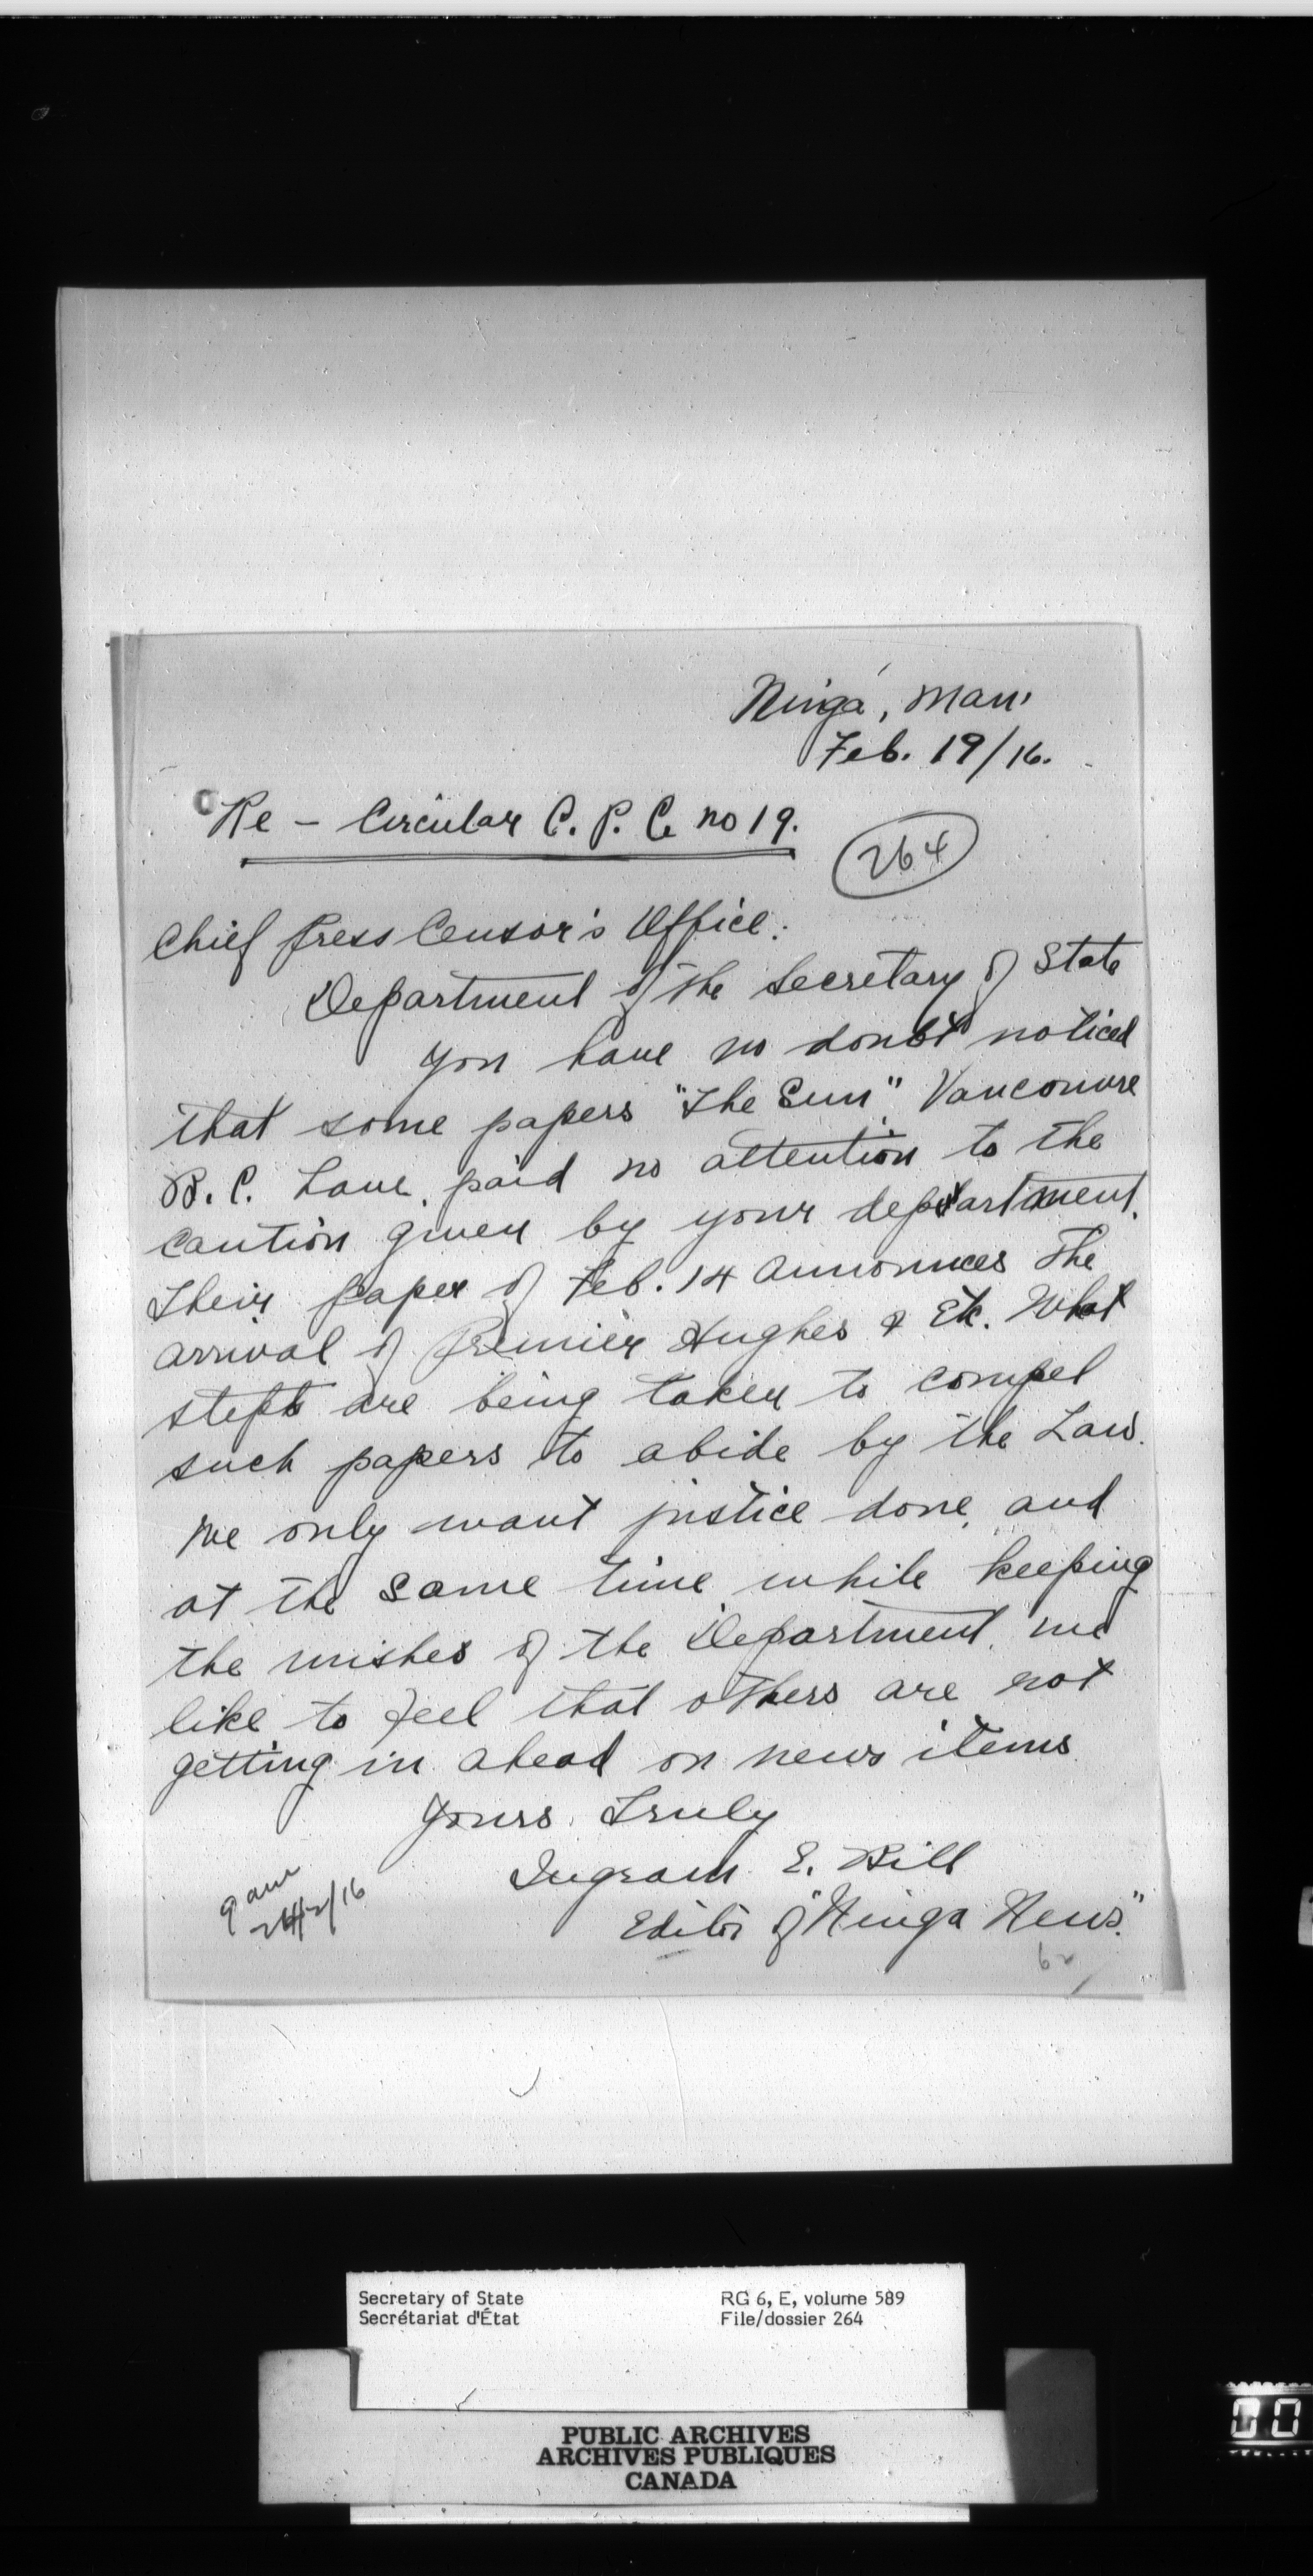 Ninga, Man.
Feb. 19/16.
Re - Circular C. P. C. no 19.
264
Chief Press Censor's Office:
Department of the Secretary of State
You have no doubt noticed
that some papers "The Sun", Vancouvre
B.C. have paid no attention to the
caution given by your department.
Their paper of Feb. 14 announces The
arrival of Premier Hughes & Etc. What
steps are being taken to compel
such papers to abide by the Law.
We only want justice done, and
at the same time while keeping
the wishes of the Department, we
like to feel that others are not
getting in ahead on news items
Yours Truly
Ingram E. Bill
Editor of "Ninga News."
Secretary of State
Secrétariat d'État
RG 6, E, volume 589
File/dossier 264
PUBLIC ARCHIVES
ARCHIVES PUBLIQUES
CANADA